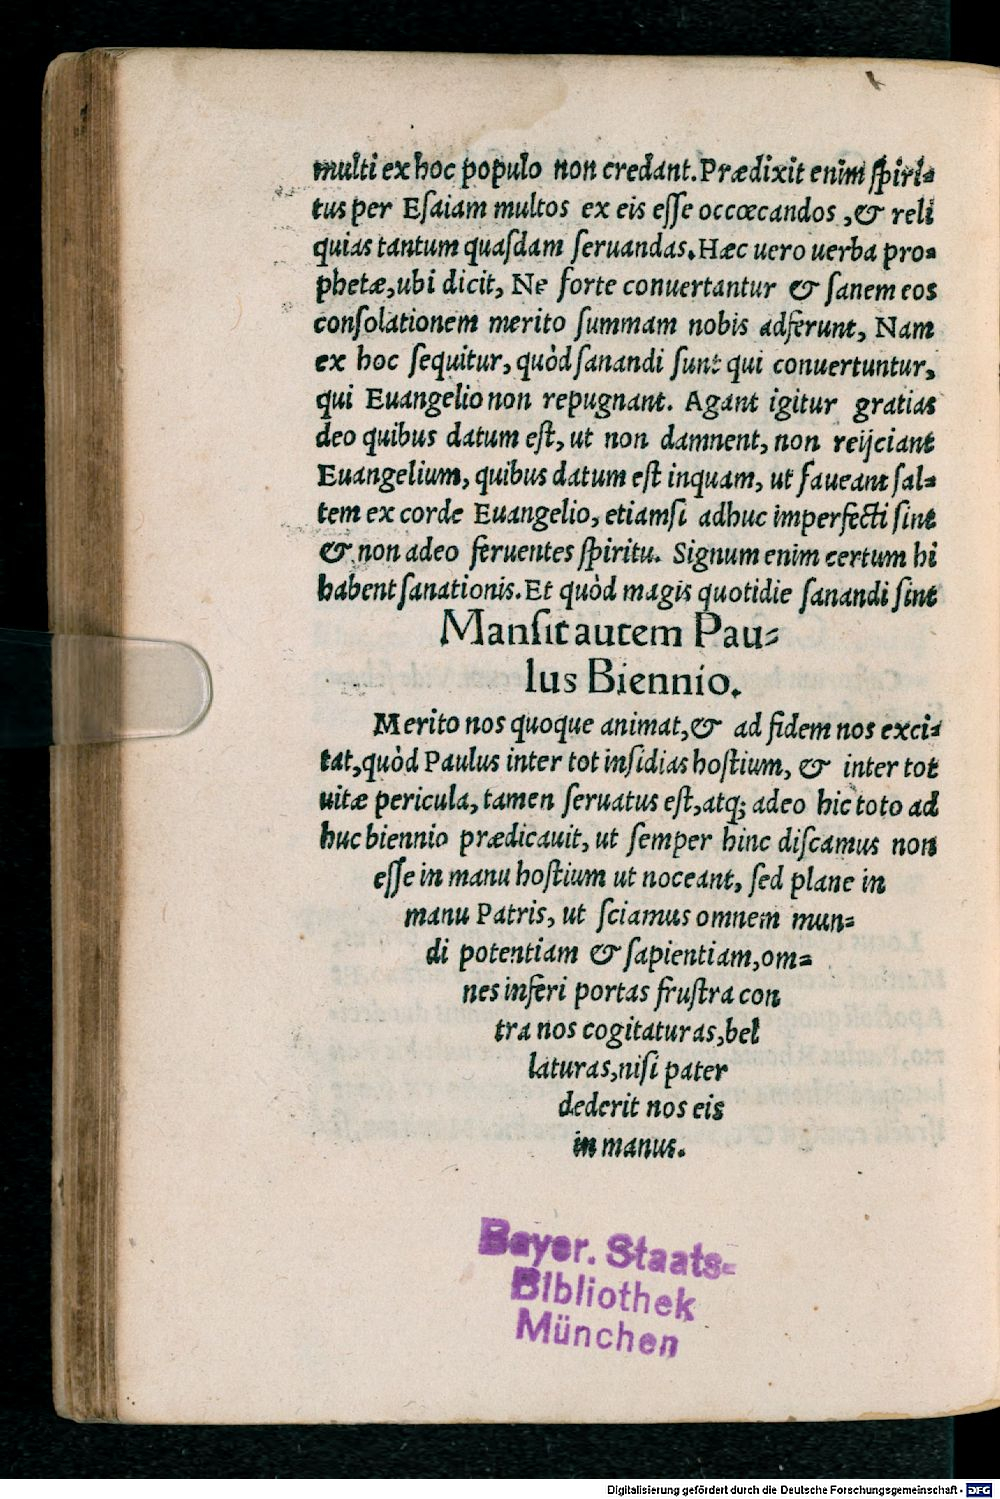 multi ex hoc populo non credant. Prædixit enim ſpiri-
tus per Eſaiam multos ex eis eſſe occœcandos, & reli
quias tantum quaſdam ſeruandas. Hæc uero uerba pro-
phetæ, ubi dicit, Ne forte conuertantur & ſanem eos
conſolationem merito ſummam nobis adferunt, Nam
ex hoc ſequitur, quòd ſanandi ſunt qui conuertuntur,
qui Euangelio non repugnant. Agant igitur gratias
deo quibus datum eſt, ut non damnent, non reijciant
Euangelium, quibus datum eſt inquam, ut faueant ſal-
tem ex corde Euangelio, etiamſi adhuc imperfecti ſint
& non adeo feruentes ſpiritu. Signum enim certum hi
habent ſanationis. Et quòd magis quotidie ſanandi ſint
Manſit autem Pau-
lus Biennio.
Merito nos quoque animat, & ad fidem nos exci-
tat, quòd Paulus inter tot inſidias hoſtium, & inter tot
uitæ pericula, tamen ſeruatus eſt, atq; adeo hic toto ad
huc biennio prædicauit, ut ſemper hinc diſcamus non
eſſe in manu hoſtium ut noceant, ſed plane in
manu Patris, ut ſciamus omnem mun-
di potentiam & ſapientiam, om-
nes inferi portas fruſtra con
tra nos cogitaturas, bel
laturas, niſi pater
dederit nos eis
in manus.
Bayer. Staats-
Bibliothek
München
Digitalisierung gefördert durch die Deutsche Forschungsgemeinschaft - DFG